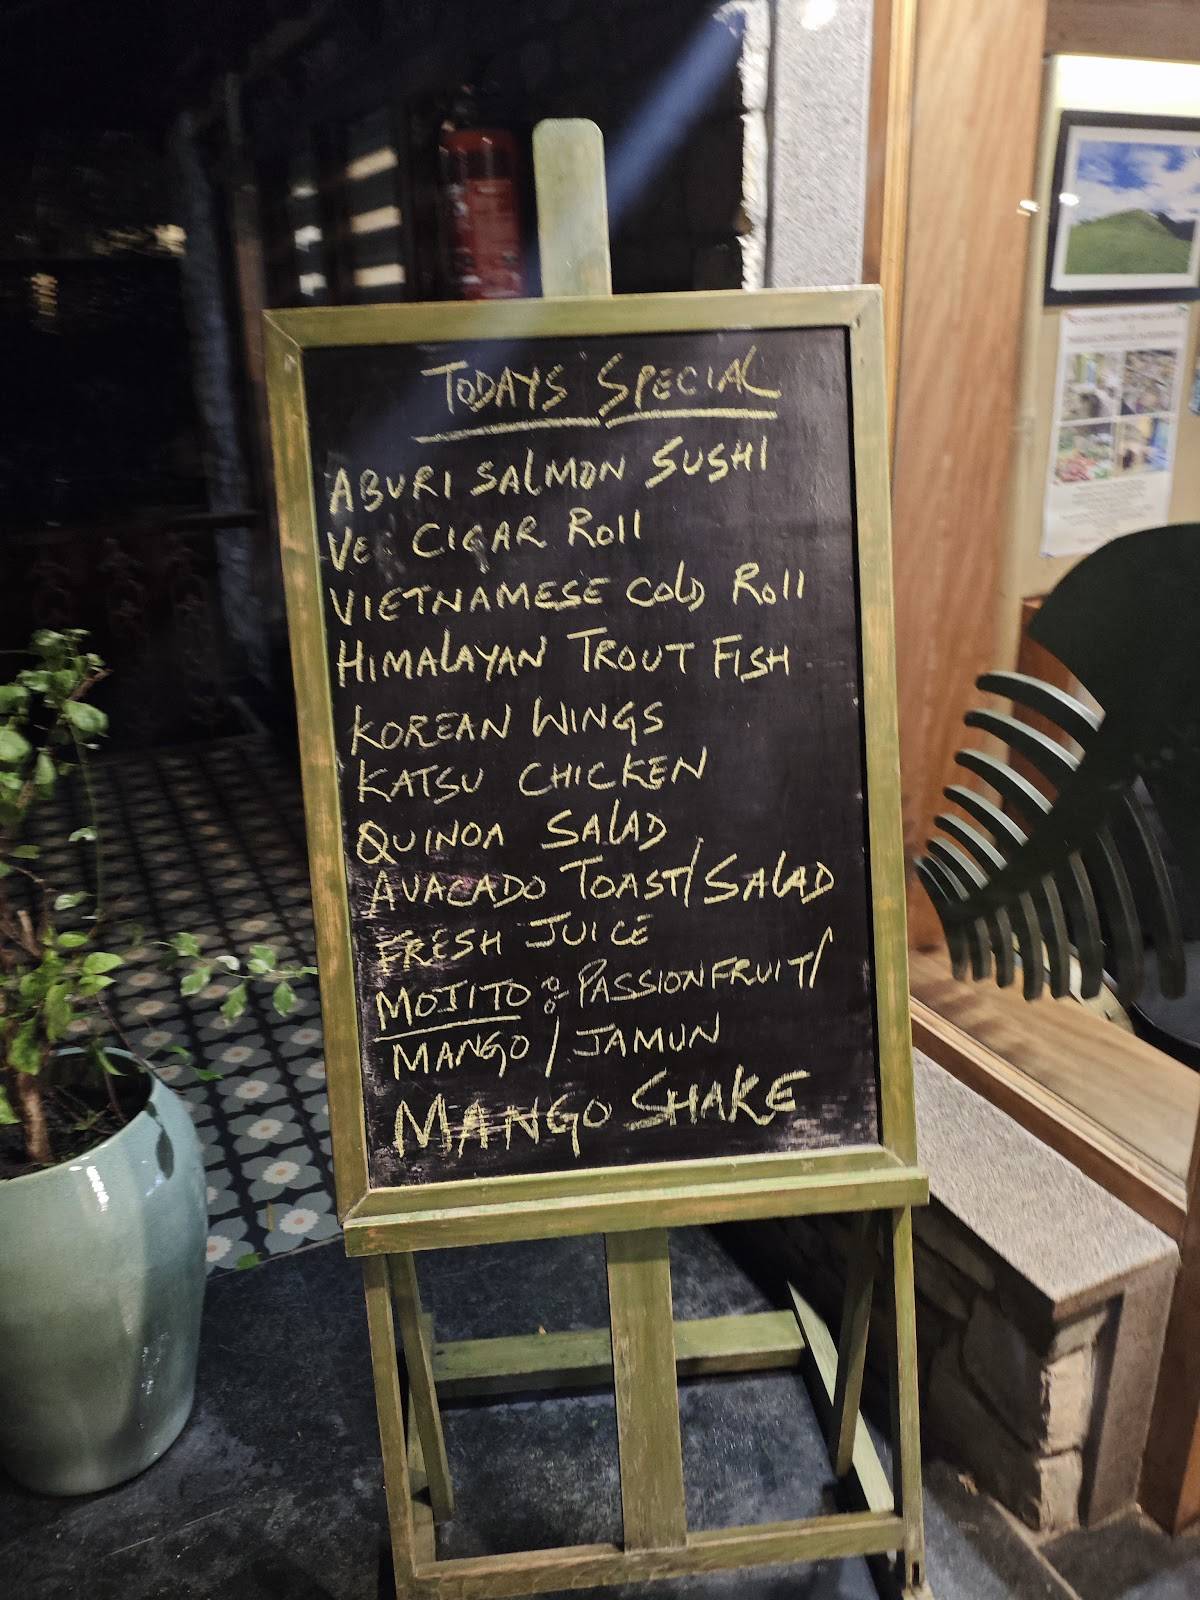 TODAYS SPECIAL
ABURI SALMON SUSHI
CIGAR ROll
VIETNAMESE COLD ROll
HIMALAYAN TROUT FISH
KOREAN WINGS
KATSU CHICKEN
QUINOA SALAD
AVACADO TOAST/SALAD
FRESH JUICE
MOJITO : PASSIONFRUIT/
MANGO / JAMUN
MANGO SHAKE